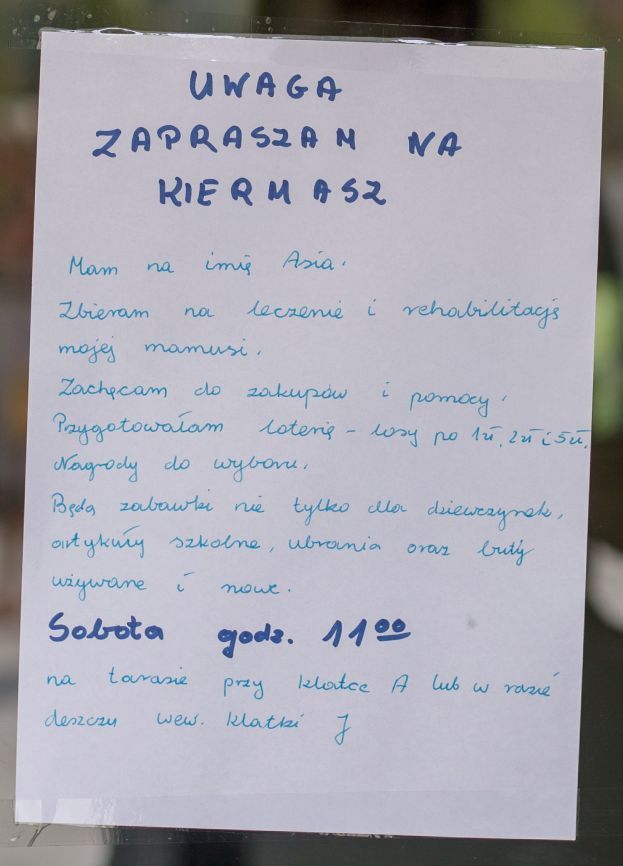 UWAGA
ZAPRASZAM NA
KIERMASZ
Mam na imię Asia.
Zbieram na leczenie i rehabilitację
mojej mamusi.
Zachęcam do zakupów i pomocy.
Przygotowałam loterię – losy po 1zł, 2zł i 5zł.
Nagrody do wyboru.
Będą zabawki nie tylko dla dziewczynek,
artykuły szkolne, ubrania oraz buty
używane i nowe.
Sobota godz. 11⁰⁰
na tarasie przy klatce A lub w razie
deszczu wew. klatki J